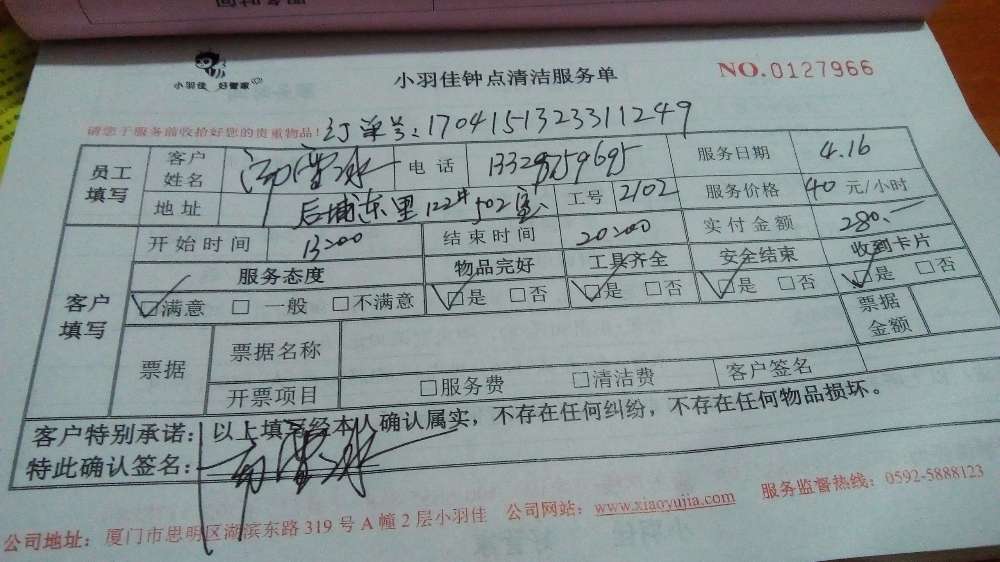 小羽佳 好管家
小羽佳钟点清洁服务单
NO.0127966
请您于服务前收拾好您的贵重物品!
订单号:1704151323311249
员工填写
客户姓名
电话 13328759695
服务日期 4.16
地址 后埔东里122# 502室
工号 2102
服务价格 40 元/小时
客户填写
开始时间 13:00
结束时间 20:00
实付金额 280.—
服务态度 物品完好 工具齐全 安全结束 收到卡片
☑满意 □ 一般 □不满意 ☑是 □否 ☑是 □否 ☑是 □否 ☑是 □否
票据 票据名称 票据金额
开票项目 □服务费 □清洁费 客户签名
客户特别承诺: 以上填写经本人确认属实，不存在任何纠纷，不存在任何物品损坏。
特此确认签名:
公司地址: 厦门市思明区湖滨东路 319 号 A 幢 2 层小羽佳 公司网站: www.xiaoyujia.com 服务监督热线: 0592-5888123